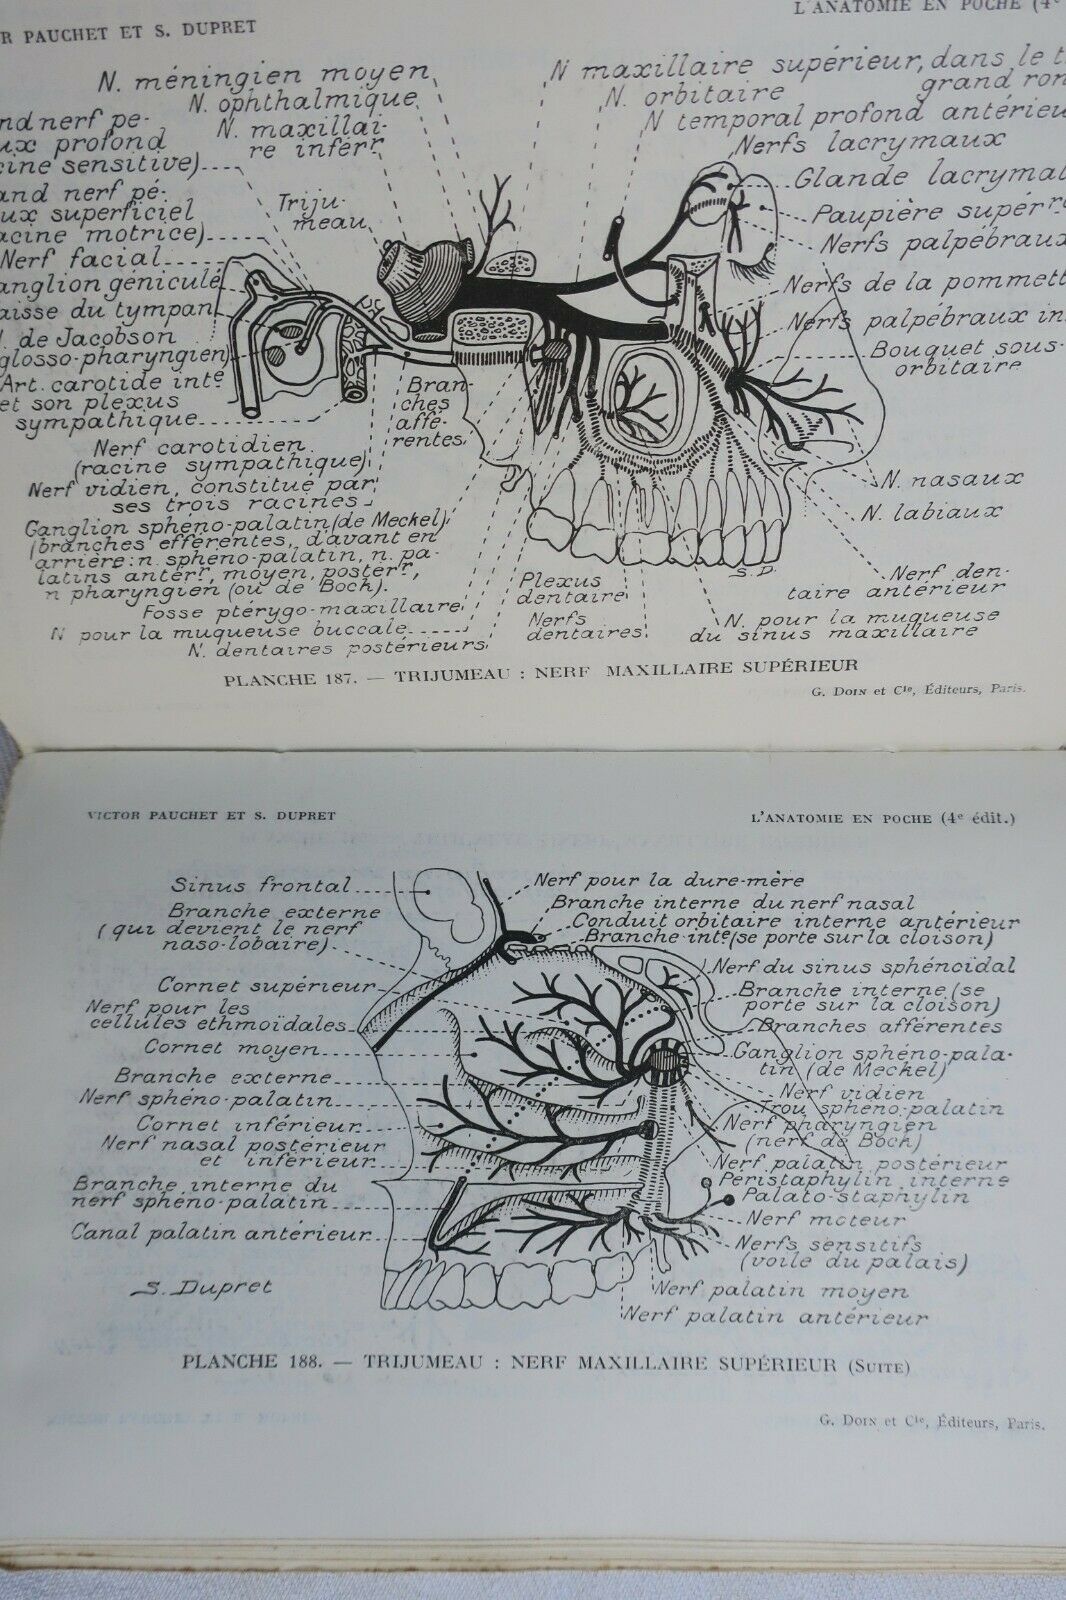 R PAUCHET ET S. DUPRET
L'ANATOMIE EN POCHE (4e
N. méningien moyen
N. ophthalmique
N. maxillai-
re inférr
nd nerf pé-
ux profond
cine sensitive)
and nerf pé-
ux superficiel
acine motrice)
Nerf facial
anglion géniculé
aisse du tympan
. de Jacobson
glosso-pharyngien)
Art. carotide inte
et son plexus
sympathique
Triju-
meau
N maxillaire supérieur, dans le t
grand ron
N. orbitaire
N temporal profond antérieu
Nerfs lacrymaux
Glande lacrymal
Paupière supérre
Nerfs palpébraux
Nerfs de la pommett
Nerfs palpébraux in
Bouquet sous-
orbitaire
Bran-
ches
affé-
rentes
Nerf carotidien
(racine sympathique)
Nerf vidien, constitué par
ses trois racines
Ganglion sphéno-palatin (de Meckel)
(branches efférentes, d'avant en
arrière: n. sphéno-palatin, n. pa-
latins antérr, moyen, postérr,
n pharyngien (ou de Bock).
Fosse ptérygo-maxillaire
N pour la muqueuse buccale
N. dentaires postérieurs
Plexus
dentaire
Nerfs
dentaires
N. nasaux
N. labiaux
Nerf den-
taire antérieur
N. pour la muqueuse
du sinus maxillaire
S. D.
PLANCHE 187. — TRIJUMEAU : NERF MAXILLAIRE SUPÉRIEUR
G. DOIN et Cie, Éditeurs, Paris.
VICTOR PAUCHET ET S. DUPRET
L'ANATOMIE EN POCHE (4e édit.)
Sinus frontal
Branche externe
(qui devient le nerf
naso-lobaire)
Cornet supérieur
Nerf pour les
cellules ethmoïdales
Cornet moyen
Branche externe
Nerf sphéno-palatin
Cornet inférieur
Nerf nasal postérieur
et inférieur
Branche interne du
nerf sphéno-palatin
Canal palatin antérieur
S. Dupret
Nerf pour la dure-mère
Branche interne du nerf nasal
Conduit orbitaire interne antérieur
Branche inte (se porte sur la cloison)
Nerf du sinus sphénoïdal
Branche interne (se
porte sur la cloison)
Branches afférentes
Ganglion sphéno-pala-
tin (de Meckel)
Nerf vidien
Trou sphéno-palatin
Nerf pharyngien
(nerf de Bock)
Nerf palatin postérieur
Péristaphylin interne
Palato-staphylin
Nerf moteur
Nerfs sensitifs
(voile du palais)
Nerf palatin moyen
Nerf palatin antérieur
PLANCHE 188. — TRIJUMEAU : NERF MAXILLAIRE SUPÉRIEUR (SUITE)
G. DOIN et Cie, Éditeurs, Paris.